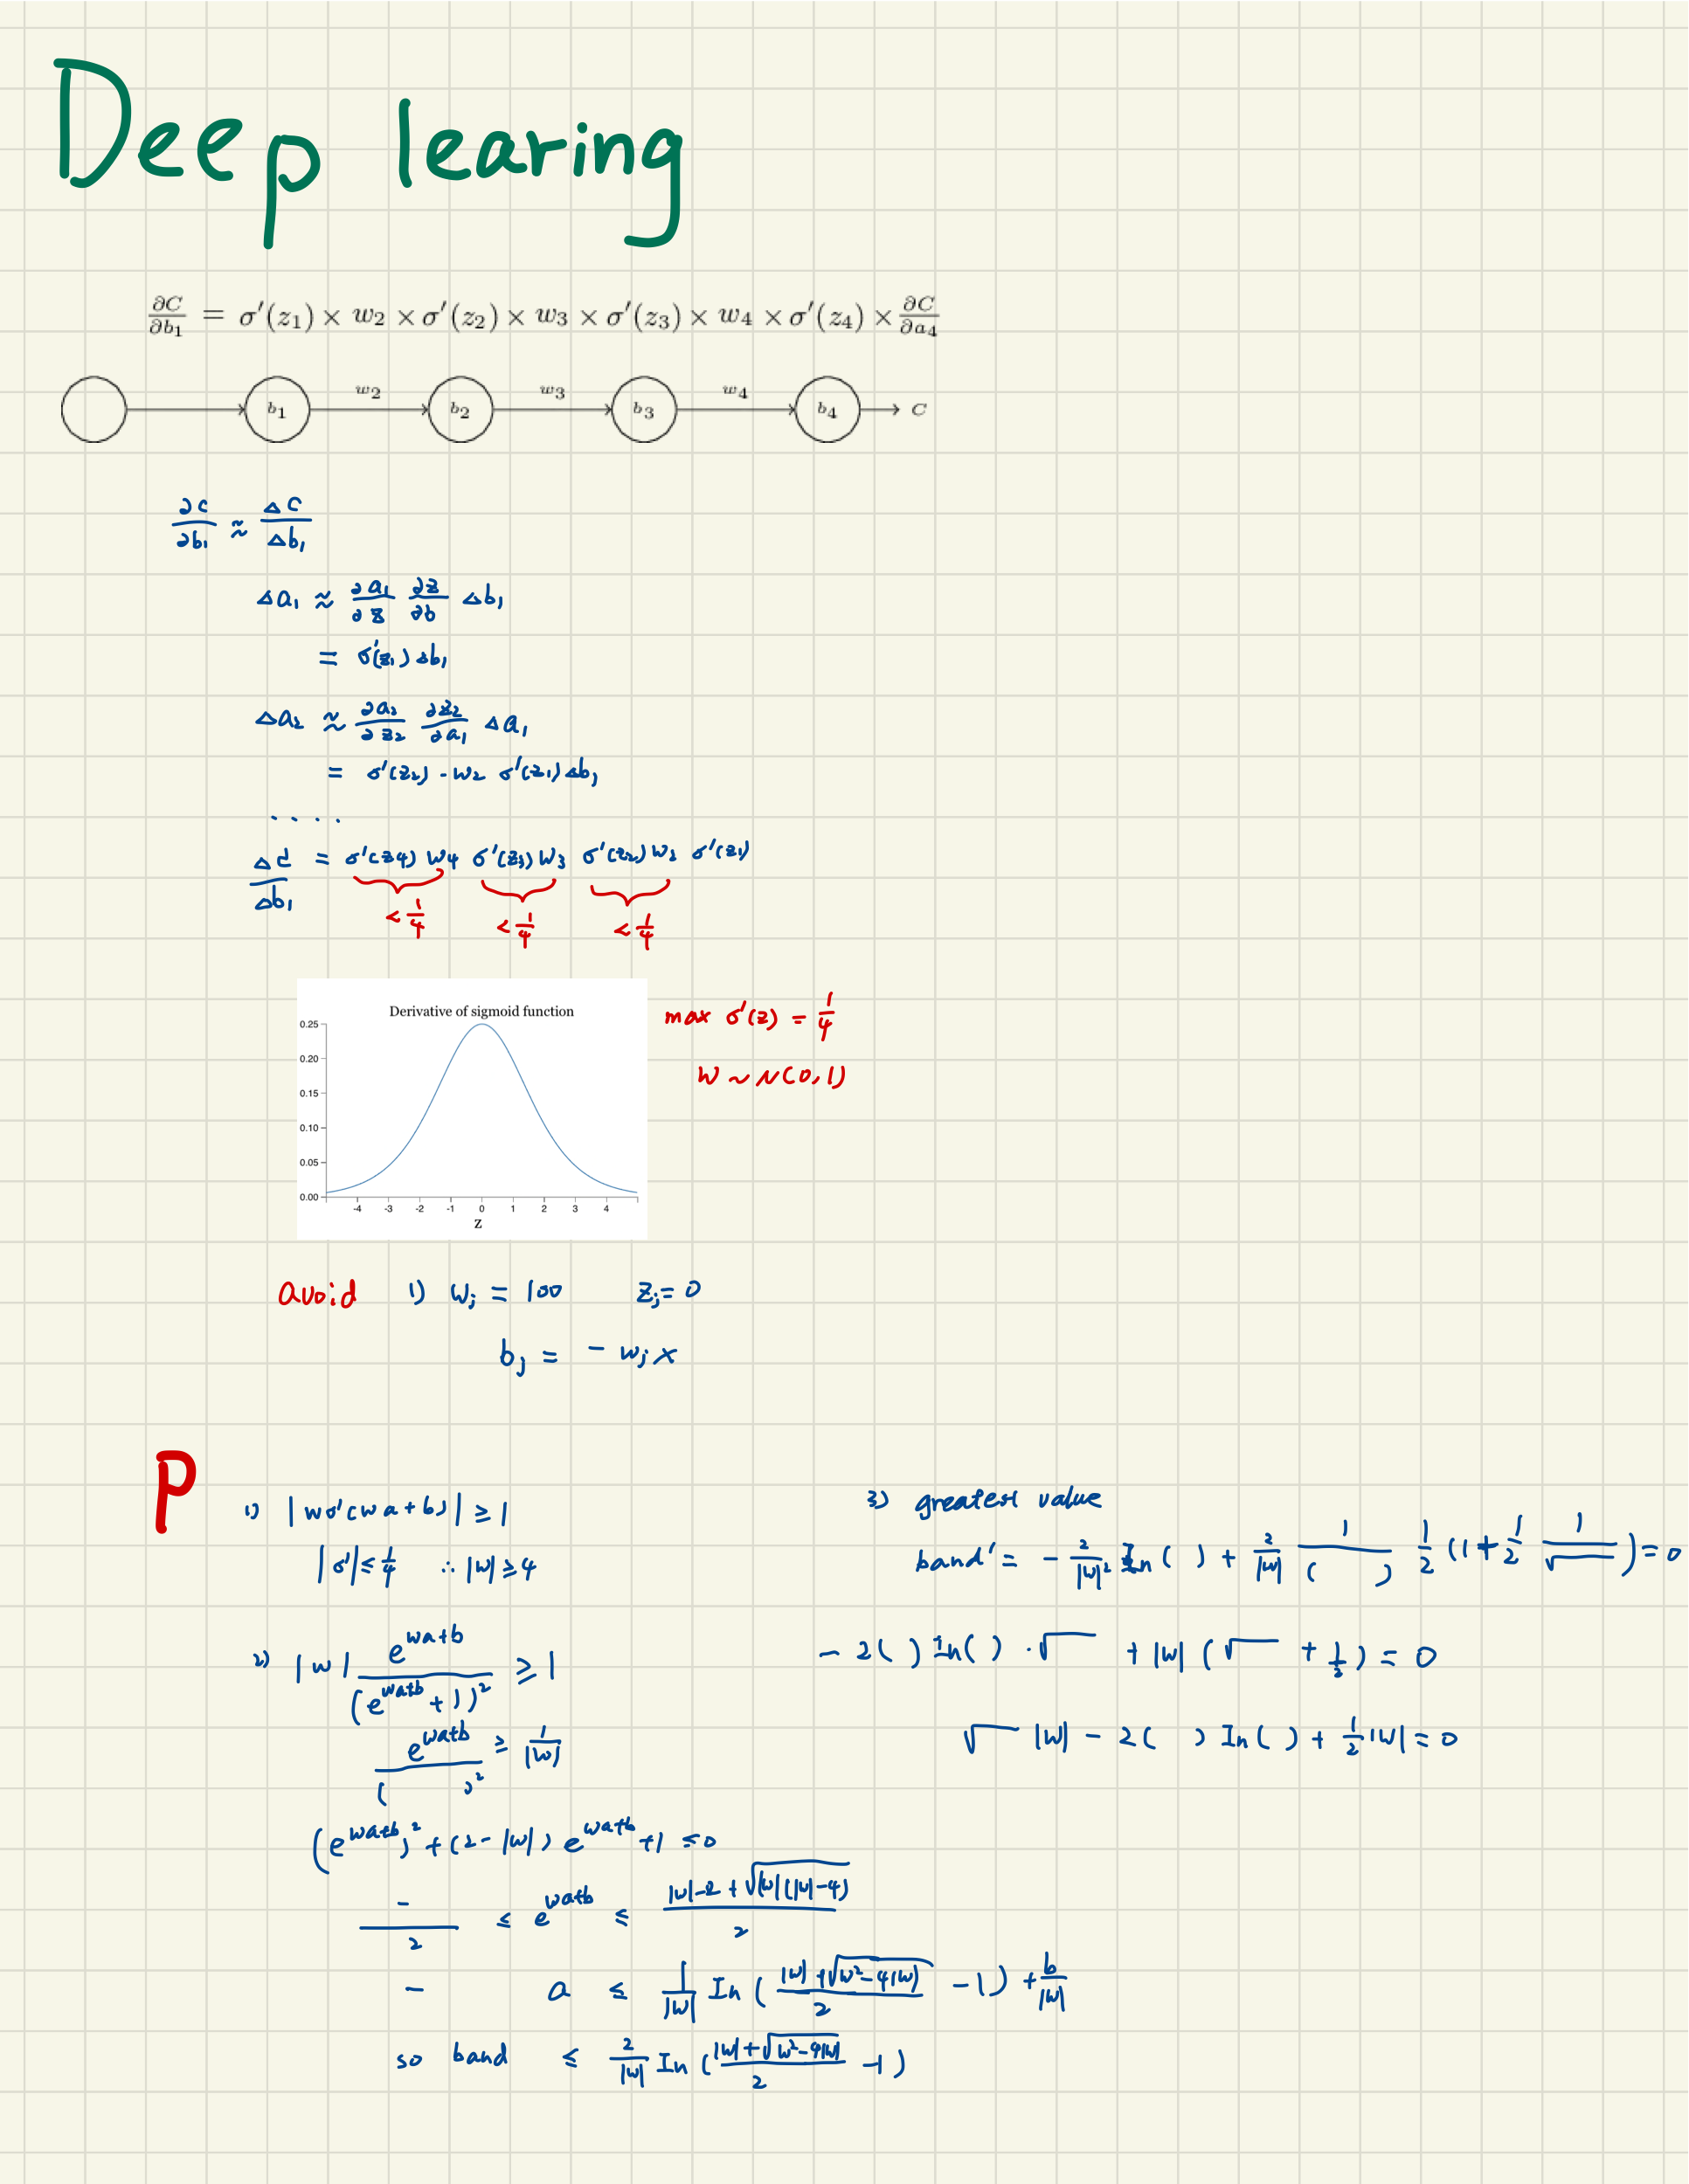 Deep learing
∂C/∂b₁ = σ′(z₁) × w₂ × σ′(z₂) × w₃ × σ′(z₃) × w₄ × σ′(z₄) × ∂C/∂a₄
b₁ w₂ b₂ w₃ b₃ w₄ b₄ C
∂c/∂b₁ ≈ ΔC/Δb₁
Δa₁ ≈ ∂a₁/∂z ∂z/∂b Δb₁
= σ′(z₁) Δb₁
Δa₂ ≈ ∂a₂/∂z₂ ∂z₂/∂a₁ Δa₁
= σ′(z₂) - w₂ σ′(z₁) Δb₁
. . . .
Δc/Δb₁ = σ′(z4) w4 σ′(z₃) w₃ σ′(z₂) w₂ σ′(z₁)
< 1/4 < 1/4 < 1/4
Derivative of sigmoid function
0.25
0.20
0.15
0.10
0.05
0.00
-4 -3 -2 -1 0 1 2 3 4
Z
max σ′(z) = 1/4
W ~ N(0,1)
avoid 1) wⱼ = 100 zⱼ = 0
bⱼ = - wⱼ x
P
1) |wσ′(wa+b)| ≥ 1
|σ′| ≤ 1/4 ∴ |w| ≥ 4
2) |w| e^(wa+b)/(e^(wa+b) + 1)² ≥ 1
e^(wa+b)/( )² ≥ 1/|w|
(e^(wa+b))² + (2 - |w|) e^(wa+b) + 1 ≤ 0
-/2 ≤ e^(wa+b) ≤ (|w| - 2 + √(|w|(|w|-4)))/2
- a ≤ 1/|w| In ((|w| + √(w² - 4|w|))/2 - 1) + b/|w|
so band ≤ 2/|w| In ((|w| + √(w² - 4|w|))/2 - 1)
3) greatest value
band′ = - 2/|w|² In ( ) + 2/|w| 1/( ) 1/2 (1 + 1/2 1/√ ) = 0
- 2( ) In( ) · √ + |w| (√ + 1/2) = 0
√ |w| - 2( ) In( ) + 1/2 |w| = 0